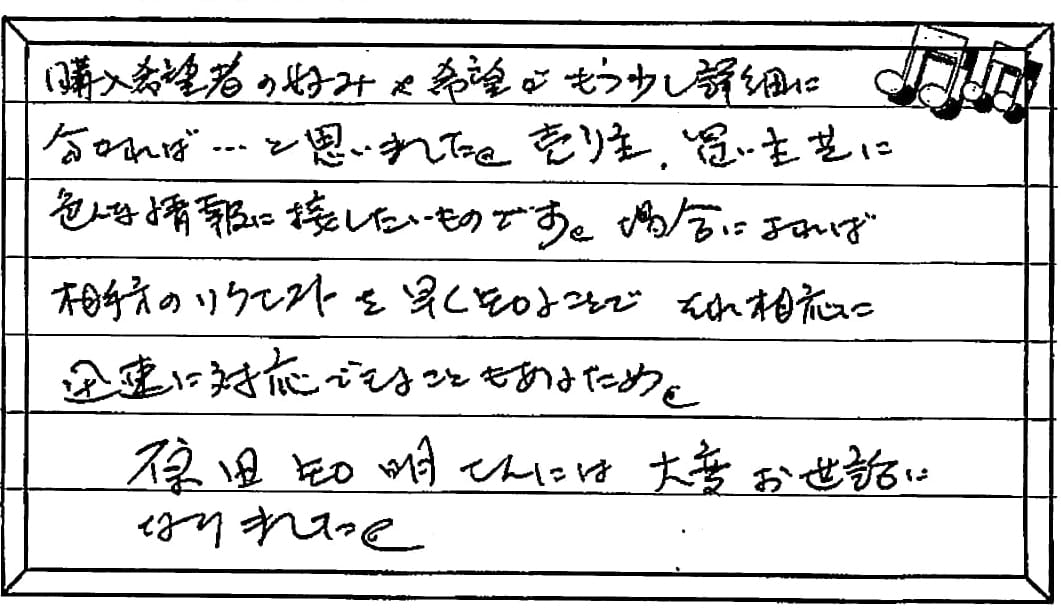 購入希望者の好みや希望がもう少し詳細に
分かれば…と思いました。売り主、買い主共に
色んな情報に接したいものです。場合によれば
相手方のリクエストを早く知ることで それ相応に
迅速に対応できることもあるため。
原田知明さんには大変お世話に
なりました。